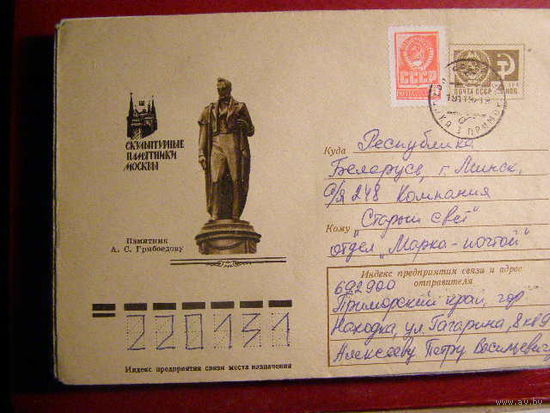 СКУЛЬПТУРНЫЕ
ПАМЯТНИКИ
МОСКВЫ
Памятник
А. С. Грибоедову
СССР
ПОЧТА СССР
Куда Республика
Беларусь, г. Минск,
а/я 248 Компания
Кому "Старый свет"
отдел "Марка-почтой"
Индекс предприятия связи и адрес
отправителя
692900
Приморский край, гор
Находка, ул. Гагарина, 8 кв 9
Алексееву Петру Васильевич
220131
Индекс предприятия связи места назначения
www.ay.by